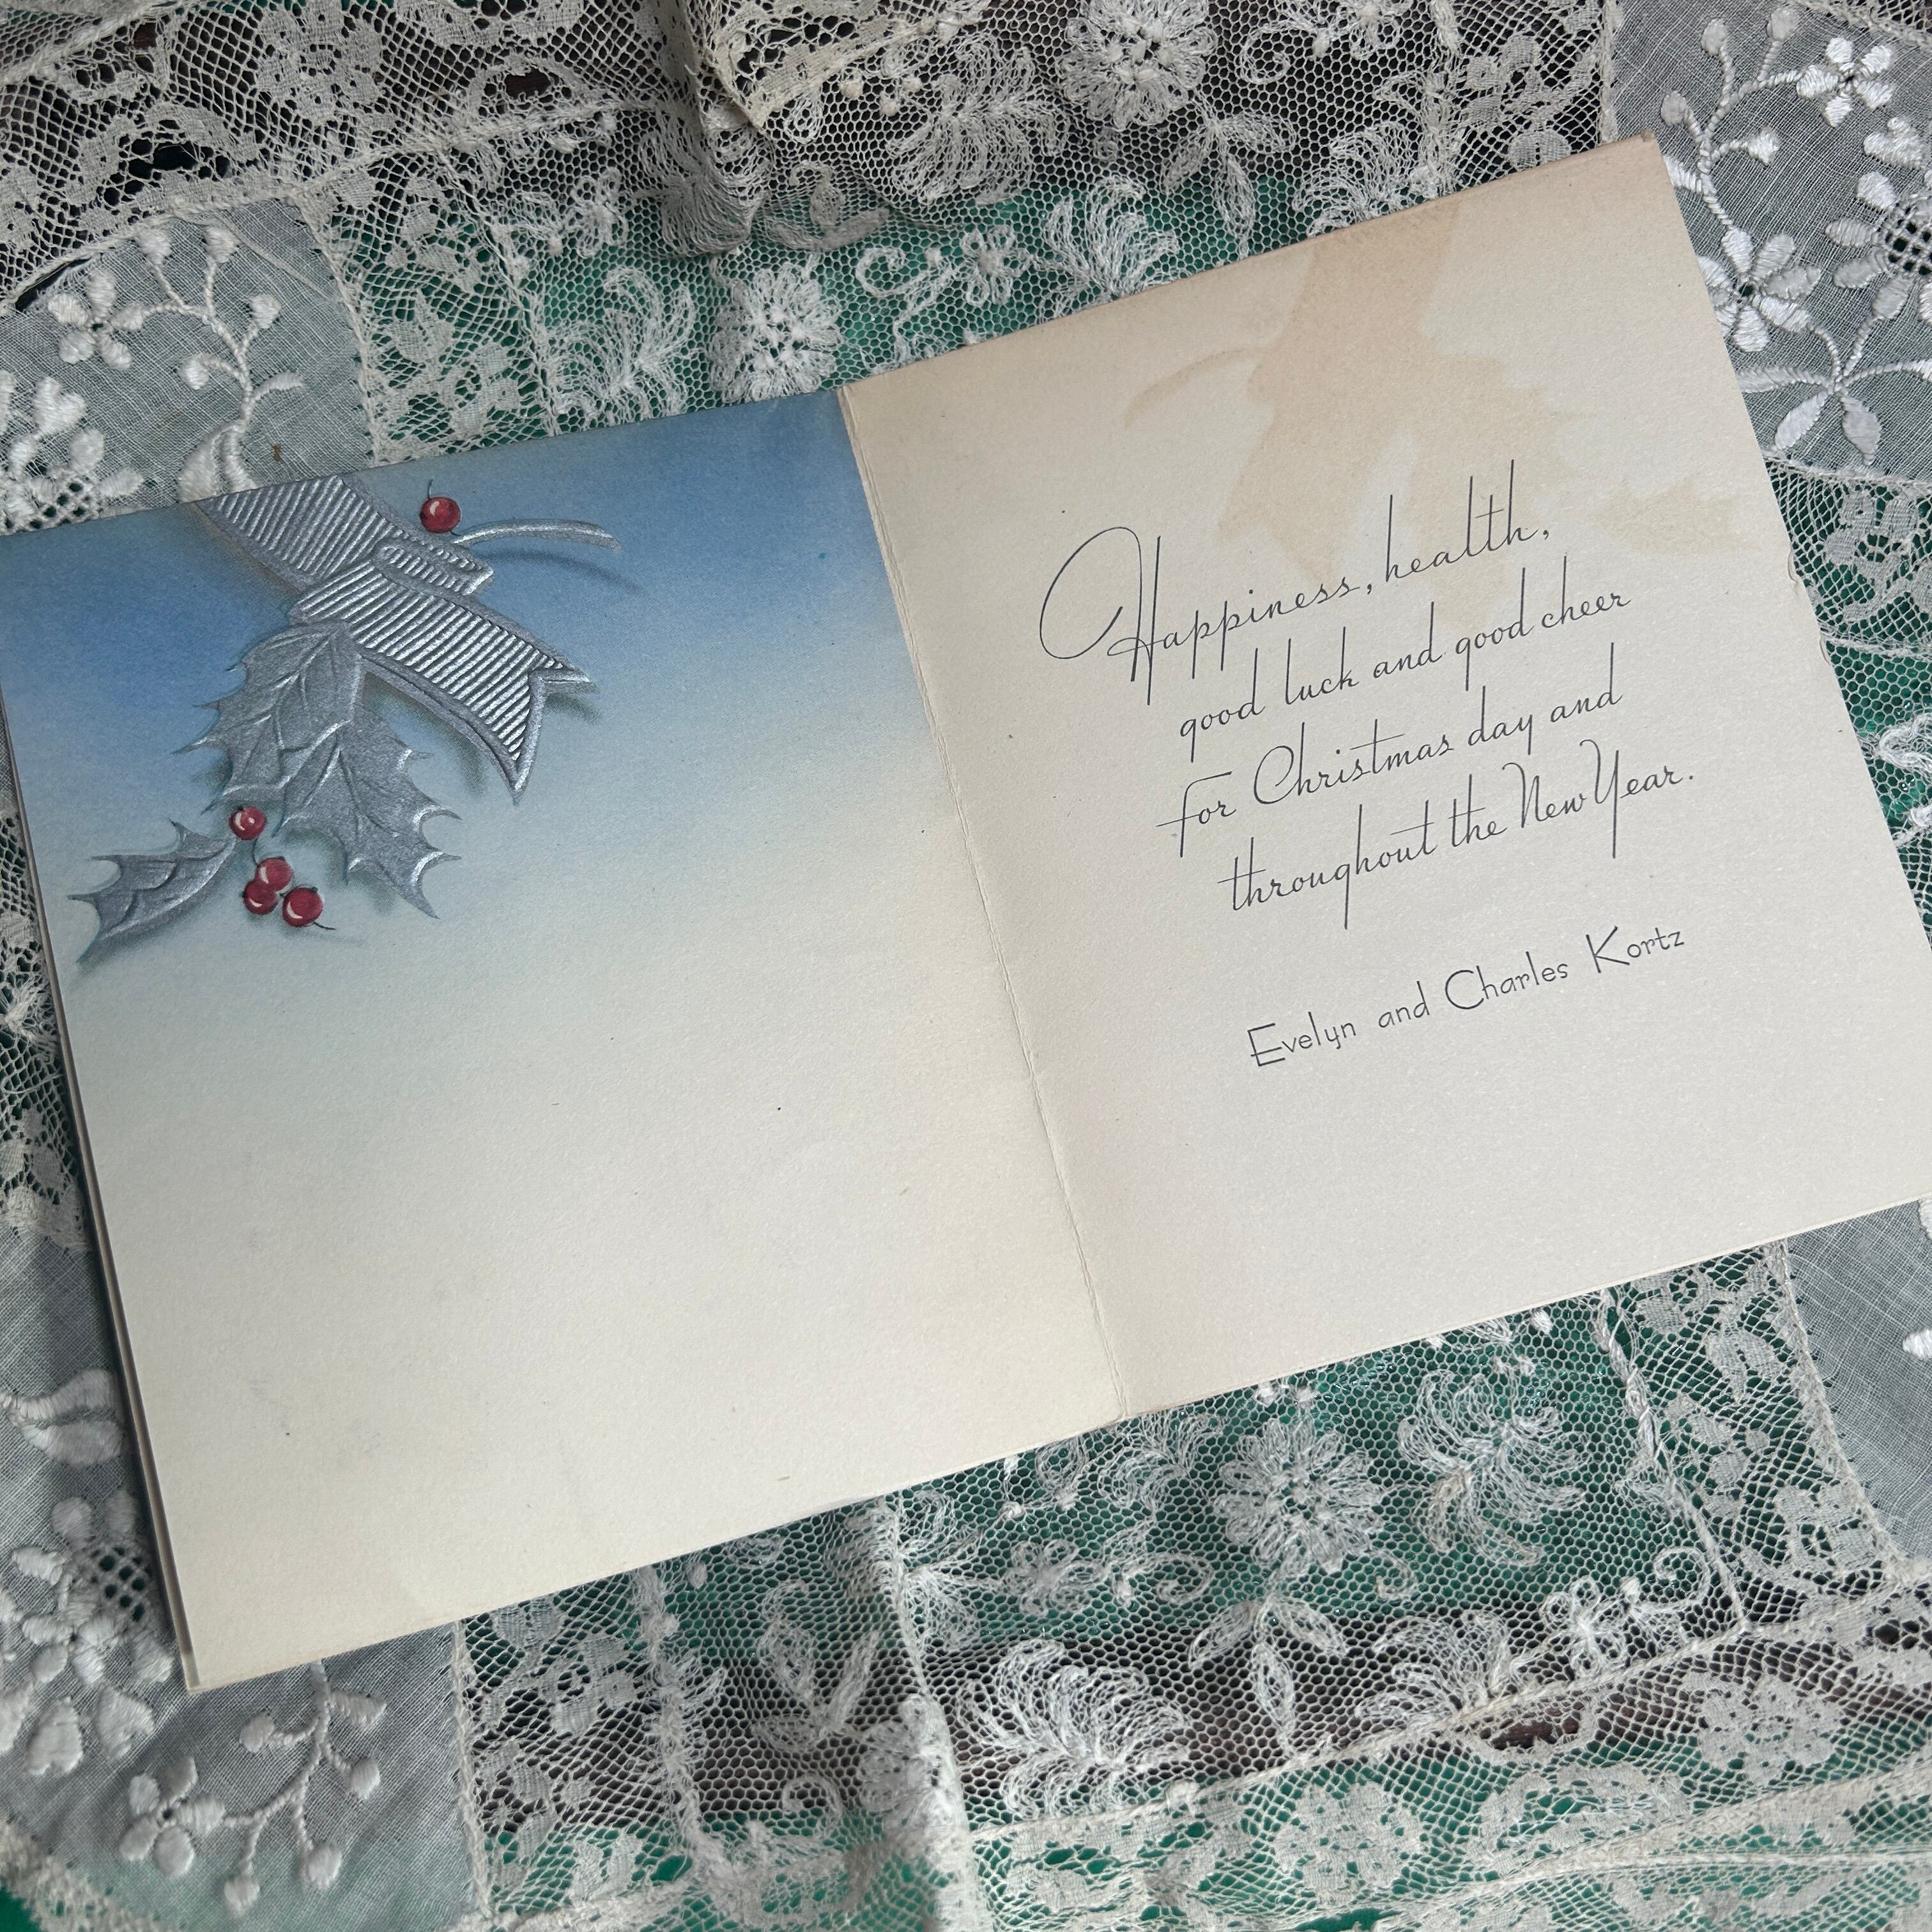 Happiness, health,
good luck and good cheer
for Christmas day and
throughout the New Year.
Evelyn and Charles Kortz